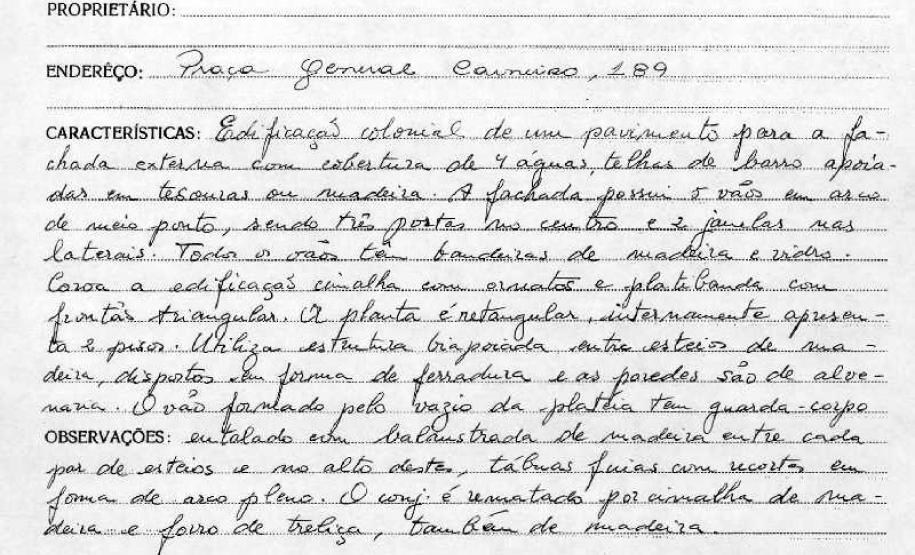 PROPRIETÁRIO:
ENDERÊÇO: Praça General Carneiro, 189
CARACTERÍSTICAS: Edificação colonial de um pavimento para a fa-
chada externa com cobertura de 4 águas, telhas de barro apoia-
das em tesouras ou madeira. A fachada possui 5 vãos em arco
de meio ponto, sendo três portas no centro e 2 janelas nas
laterais. Todos os vãos têm bandeiras de madeira e vidro.
Coroa a edificação cimalha com ornatos e platibanda com
frontão triangular. A planta é retangular, internamente apresen-
ta 2 pisos. Utiliza estrutura biapoiada entre esteios de ma-
deira, dispostos em forma de ferradura e as paredes são de alve-
naria. O vão formado pelo vazio da platéia tem guarda-corpo
OBSERVAÇÕES: entalado com balaustrada de madeira entre cada
par de esteios e no alto destes, tábuas finas com recortes em
forma de arco pleno. O conj. é rematado por cimalha de ma-
deira e forro de treliça, também de madeira.